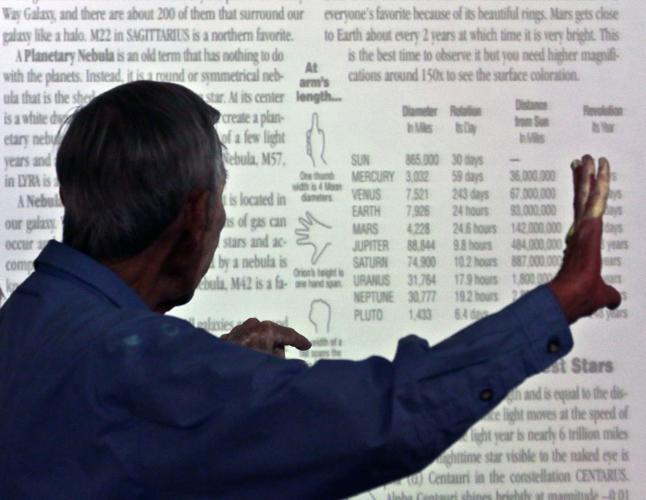 Way Galaxy, and there are about 200 of them that surround our
galaxy like a halo. M22 in SAGITTARIUS is a northern favorite.
A Planetary Nebula is an old term that has nothing to do
with the planets. Instead, it is a round or symmetrical neb-
ula that is the star. At its center
is a white create a plan-
etary of a few light
years and Nebula, M57,
in LYRA is
A is located in
our galaxy. of gas can
occur stars and ac-
by a nebula is
M42 is a fa-
galaxies
At
arm's
length...
One thumb
width is 4 Moon
diameters.
Orion's height is
one hand span.
width of a
spans the
everyone's favorite because of its beautiful rings. Mars gets close
to Earth about every 2 years at which time it is very bright. This
is the best time to observe it but you need higher magnifi-
cations around 150x to see the surface coloration.
Diameter Rotation Distance from Sun Revolution
In Miles Its Day In Miles Its Year
SUN 865,000 30 days —
MERCURY 3,032 59 days 36,000,000
VENUS 7,521 243 days 67,000,000
EARTH 7,926 24 hours 93,000,000
MARS 4,228 24.6 hours 142,000,000
JUPITER 88,844 9.8 hours 484,000,000 years
SATURN 74,900 10.2 hours 887,000,000 years
URANUS 31,764 17.9 hours
NEPTUNE 30,777 19.2 hours
PLUTO 1,433 6.4 days years
Stars
and is equal to the dis-
light moves at the speed of
light year is nearly 6 trillion miles
star visible to the naked eye is
Centauri in the constellation CENTARUS.
Alpha Centauri shines brightly at magnitude -0.01